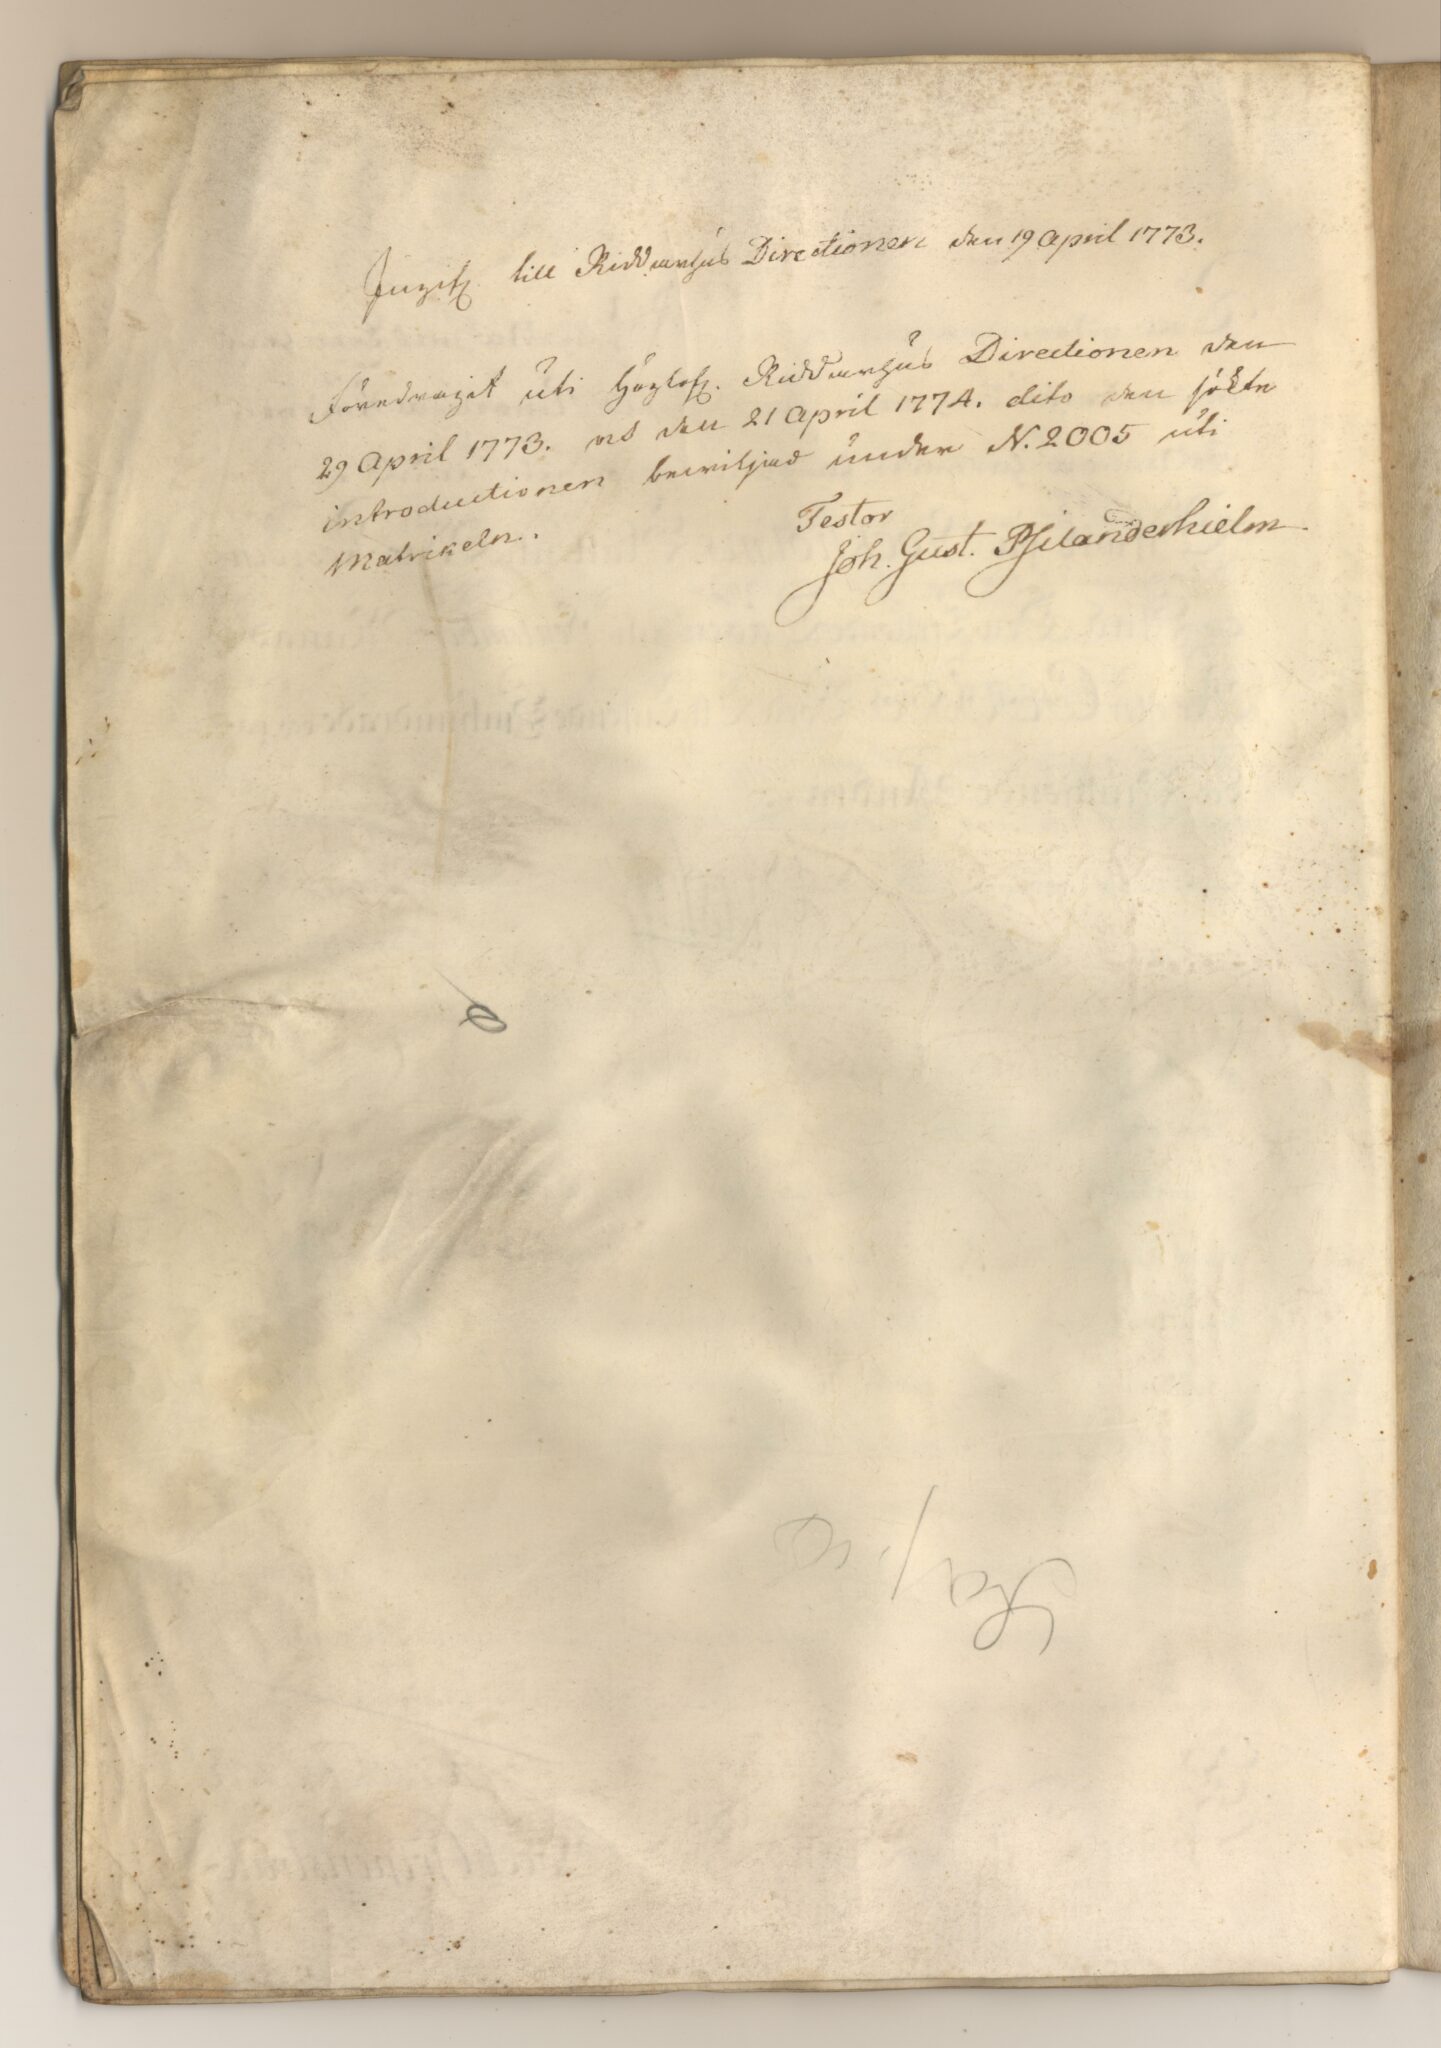 Ingifz. till Riddarhus Directionen den 19 april 1773.
Föredragit uti Höglofl. Riddarhus Directionen den
29 April 1773. och den 21 April 1774. dito den sökte
introductionen beviljad under N. 2005 uti
Matrikeln.
Testor
Joh. Gust. Psilanderhielm